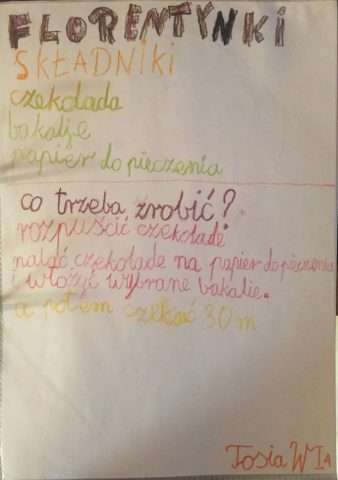 FLORENTYNKI
SKŁADNIKI
czekolada
bakalje
papier do pieczenia
co trzeba zrobić?
rozpuścić czekoladę
nalać czekolade na papier do pieczenia
i włożyć wybrane bakalie.
a potem czekać 30 m
Tosia W IA